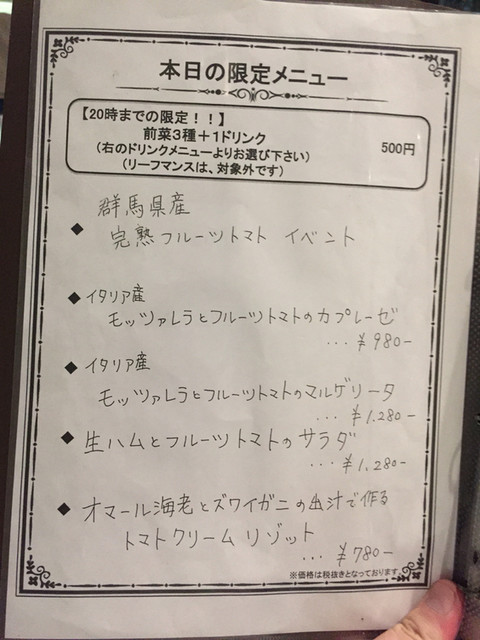 本日の限定メニュー
【20時までの限定！！】
前菜3種＋1ドリンク
500円
（右のドリンクメニューよりお選び下さい）
（リーフマンスは、対象外です）
群馬県産
◆ 完熟フルーツトマト イベント
◆ イタリア産
モッツァレラとフルーツトマトのカプレーゼ
… ¥980-
◆ イタリア産
モッツァレラとフルーツトマトのマルゲリータ
… ¥1.280-
◆ 生ハムとフルーツトマトのサラダ
… ¥1.280-
◆ オマール海老とズワイガニの出汁で作る
トマトクリームリゾット
… ¥780-
※価格は税抜きとなっております。